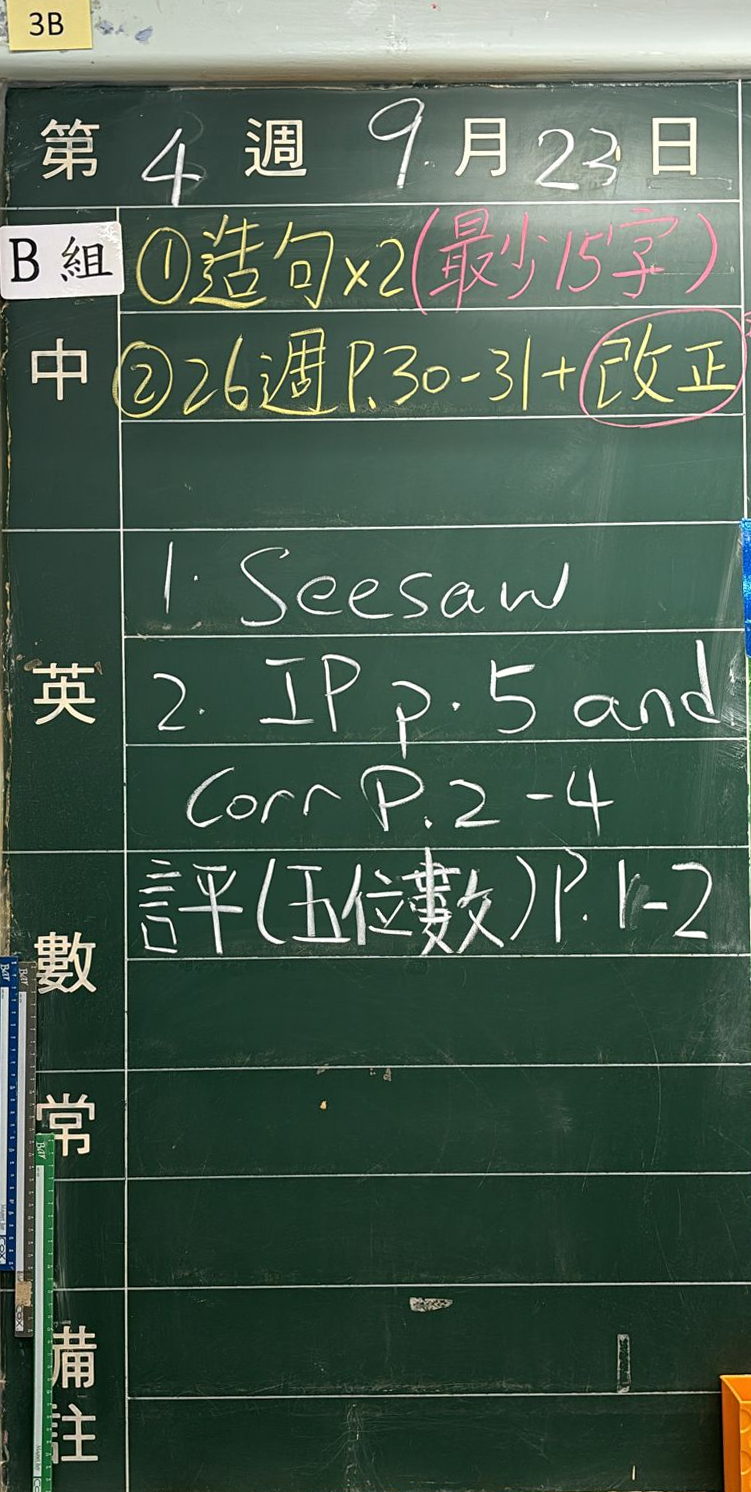 3B
第 4 週 9 月 23 日
B 組 ①造句×2(最少15字)
中 ②26週P.30-31+改正
1. Seesaw
英 2. IP p. 5 and
Corr P. 2-4
數 評(五位數)P. 1-2
常
備
註